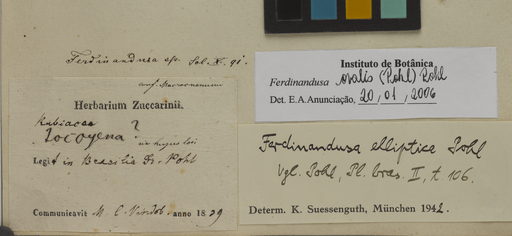 Ferdinandusa sp. Sel. X. 91.
Herbarium Zuccarinii.
Rubiaceae
Tocoyena?
Legit in Brasilia Dr. Pohl
Communicavit M. C. Vindob. anno 1829
Instituto de Botânica
Ferdinandusa ovalis (Pohl) Pohl
Det. E.A.Anunciação, 20, 01, 2006
Ferdinandusa elliptica Pohl
Vgl. Pohl, Pl. bras. II, t. 106.
Determ. K. Suessenguth, München 1942.